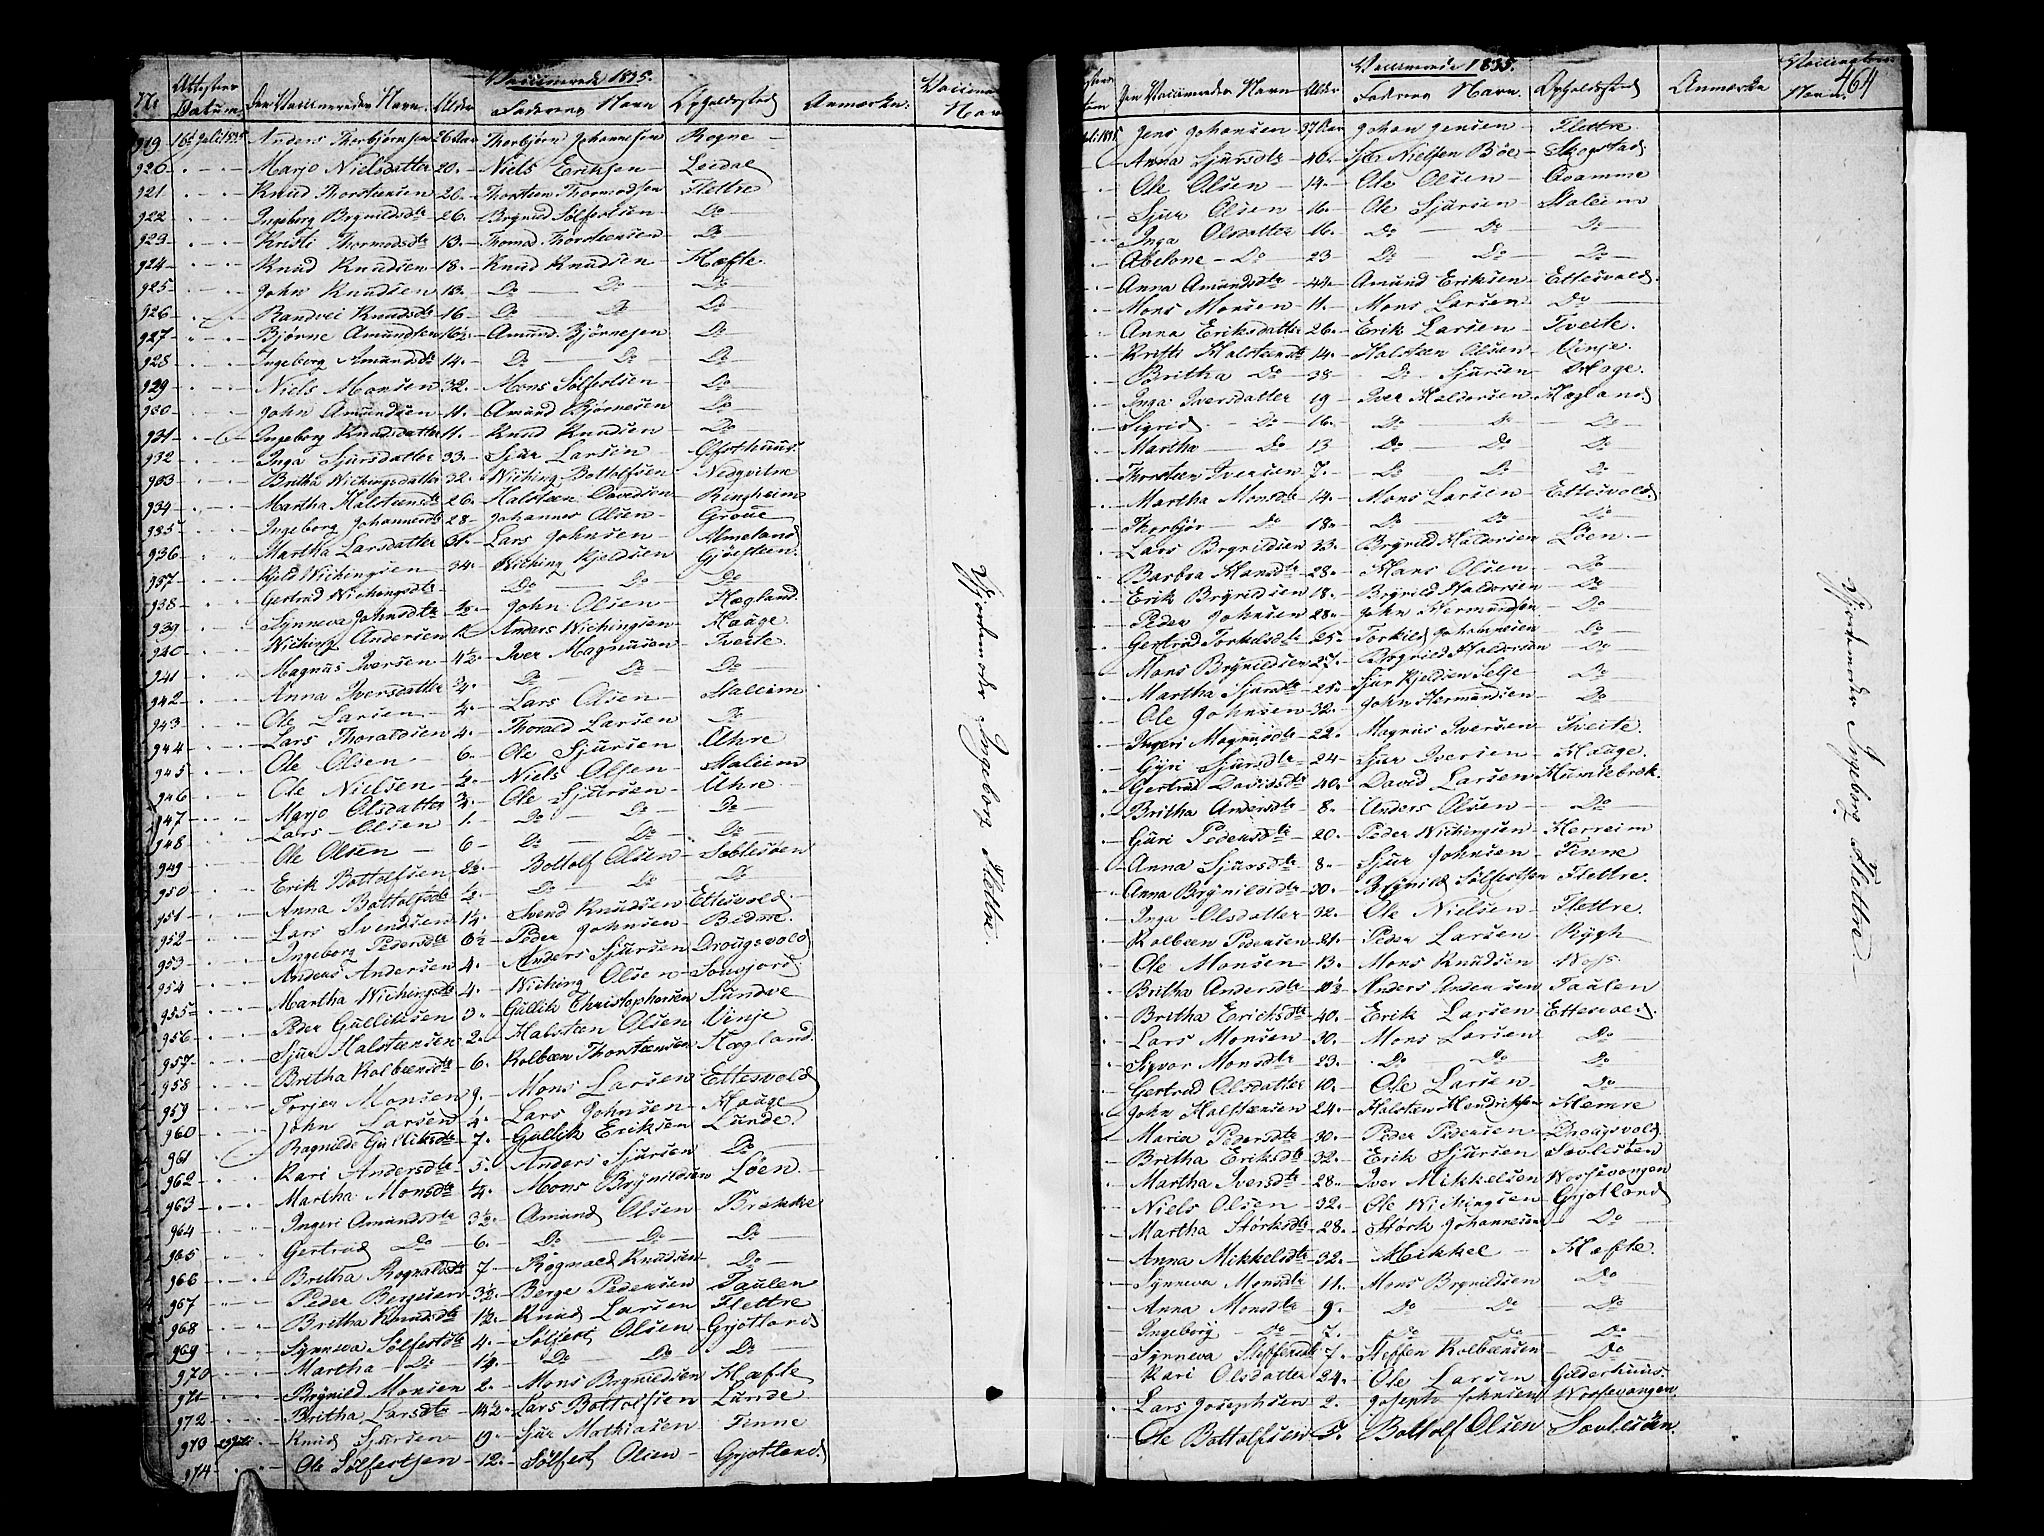 Vaccinerede 1835.
No Attesters Datum. Den Vaccineredes Navn. Alder Faderens Navn Opholdssted Anmærkn. Vaccina Navn
919 16de Juli 1835 Anders Thorbjørnsen 26 Aar Thorbjørn Johannesen Rogne
920 Marjo Nielsdatter 20. Niels Eriksen Leidal
921 Knud Thorsteensen 26. Thorsten Thormodsen Flettre
922 Ingeborg Brynildsdtr 26. Brynild Sølfestsen Do
923 Kristi Thormodsdtr 13. Thormod Thorsteensen Do
924 Knud Knudsen 18. Knud Knudsen Hæfte
925 John Knudsen 13. Do Do Do
926 Randvei Knudsdtr 16 Do Do Do
927 Bjørne Amundsen 16½. Amund Bjørnesen Do
928 Ingeborg Amundsdtr 14. Do Do Do
929 Niels Monsen 32. Mons Sølfestsen Do
930 John Amundsen 11. Amund Bjørnesen Do
931 Ingeborg Knudsdatter 11. Knud Knudsen Do
932 Inga Sjursdatter 33. Sjur Larsen Gjelthuus
933 Britha Wichingsdatter 32. Wiching Bottolfsen Nedqvitne
934 Martha Halsteensdtr 26. Halsteen Davidsen Ringheim
935 Ingeborg Johannesdtr 28. Johannes Olsen Groue
936 Martha Larsdatter 31. Lars Johnsen Almeland
937 Kjeld Wichingsen 34. Wiching Kjeldsen Gjøesteen.
938 Gertrud Wichingsdtr Do Do Do
939 Synneva Johnsdtr John Olsen Hægland
940 Wiching Andersen Anders Wichingsen Haüge
941 Magnus Iversen 4½. Iver Magnusen Tveite
942 Anna Iversdatter Do Do Do
943 Ole Larsen Lars Olsen Staleim
944 Lars Thoraldsen 4. Thorald Larsen Do
945 Ole Olsen 6. Ole Sjursen Uhre
946 Ole Nielsen Niels Olsen Staleim
947 Marjo Olsdatter Ole Sjursen Uhre
948 Lars Olsen 1. Do Do Do
949 Ole Olsen 6 Do Do Do
950 Erik Bottolfsen 2½. Bottolf Olsen Søblesøen
951 Anna Bottolfsdtr Do Do Do
952 Lars Svendsen Svend Knudsen Ettesvold
953 Ingeborg Pedersdtr 6½ Peder Johnsen Bidne
954 Anders Andersen 4. Anders Sjursen Drougsvold
955 Martha Wichingsdtr 4. Wiching Olsen Sougjord
956 Peder Gullitsen 3. Gullik Christophersen Sundve
957 Sjur Halsteensen 2. Halsteen Olsen Vinje
958 Britha Kolbeensdtr 6. Kolbeen Thorsteensen Hægland
959 Torjer Monsen 9. Mons Larsen Ettesvold
960 John Larsen Lars Johnsen Haüge
961 Ragnilde Gulliksdtr 7. Gullik Eriksen Lunde
962 Kari Andersdtr 5. Anders Sjursen Do
963 Martha Monsdtr Mons Brynildsen Løen
964 Ingeri Amundsdtr 3½. Amund Olsen Brekke
965 Gertrud Do 6. Do Do Do
966 Britha Rognaldsdtr 7 Rognald Knudsen Do
967 Peder Bergesen 3½. Berge Pedersen Taulen
968 Britha Knudsdtr 1½. Knud Larsen Flettre
969 Synneva Sølfestsdtr 4. Sølfest Olsen Grjotland
970 Martha Do Do Do Do
971 Brynild Monsen 2. Mons Brynildsen Hæfte
972 Britha Larsdtr 14½. Lars Bottolfsen Lunde
973 23 Juli Knud Sjursen 19. Sjur Mathiasen Finne
974 Ole Sølfestsen 12. Sølfest Olsen Grjotland
Gjordemoder Ingeborg Flettre.
Vaccinerede 1835.
464
Den Vaccineredes Navn Alder Faderens Navn. Opholdssted Anmærkn
Jens Johansen 37 Aar Johan Jensen Flettre
Anna Sjursdtr 40. Sjur Nielsen Böe Skogstad
Ole Olsen 14. Ole Olsen Qvamme
Sjur Olsen 16. Ole Sjursen Staleim
Inga Olsdatter 16. Do Do Do
Abelone Do 23 Do Do Do
Anna Amundsdtr 44. Amund Eriksen Ettesvold
Mons Monsen 11. Mons Larsen Do
Anna Eriksdatter 26. Erik Larsen Tveite.
Kristi Halsteensdtr 14. Halsteen Olsen Vinje
Britha Do 38 Do Sjursen Hage.
Inga Iversdatter 19 Iver Haldorsen Hægland
Sigrid Do 16. Do Do Do
Martha Do 13 Do Do Do
Thorsteen Iversen 7. Do Do Do
Martha Monsdtr 14. Mons Larsen Ettesvold
Thorbjør Do 18. Do Do Do
Lars Brynildsen 33. Brynild Haldorsen Löen.
Barbra Hansdtr 28. Hans Olsen Do
Erik Brynildsen 18. Brynild Haldorsen Do
Peder Johnsen 28. John Hermundsen Do
Gertrud Torkildsdtr 25. Torkild Johannesen Do
Mons Brynildsen 27. Brynild Haldorsen Do
Martha Sjursdtr 25. Sjur Kjeldsen Selje Do
Ole Johnsen 32. John Hermundsen Do
Ingeri Magnusdtr 22. Magnus Iversen Tveite.
Guri Sjursdtr 24 Sjur Iversen Hauge.
Gertrud Davidsdtr 40. David Larsen Humlebrek.
Britha Andersdtr 8. Anders Olsen Do
Guri Pedersdtr 20. Peder Wichingsen Herreim
Anna Sjursdtr 8. Sjur Johnsen Finne
Anna Brynildsdtr 30. Brynild Sølfestsen Flettre.
Inga Olsdatter 32. Ole Nielsen Flettre.
Kolbeen Pedersen 21. Peder Larsen Rÿgh
Ole Monsen 13. Mons Knudsen Woss.
Britha Andersdtr 10½ Anders Andersen Taulen
Britha Erichsdtr 40. Erik Larsen Ettesvold.
Lars Monsen 30. Mons Larsen Do
Sygvor Monsdtr 23. Do Do Do
Gertrud Olsdatter 10. Ole Larsen Do
John Halsteensen 24. Halsten Hendriksen Hemre
Maria Pedersdtr 30. Peder Pedersen Drougsvold
Britha Eriksdtr 32. Erik Sjursen Søvlesøen
Martha Iversdtr 28. Iver Mikkelsen Wossevangen
Niels Olsen 32. Ole Wichingsen Grjotland
Martha Størksdtr 28. Størk Johannesen Do
Anna Mikkelsdtr 32. Mikkel Hæfte.
Synneva Monsdtr 11. Mons Brynildsen Do
Anna Monsdtr 9. Do Do Do
Ingeborg Do 7. Do Do Do
Synneva Steffensdtr 7. Steffen Kolbeensen Do
Kari Olsdatter 24. Ole Larsen Gilderhuus
Lars Josephsen 2. Joseph Johnsen Wossevangen
Ole Bottolfsen 5. Bottolf Olsen Søvlesøen.
Gjordemoder Ingeborg Flettre